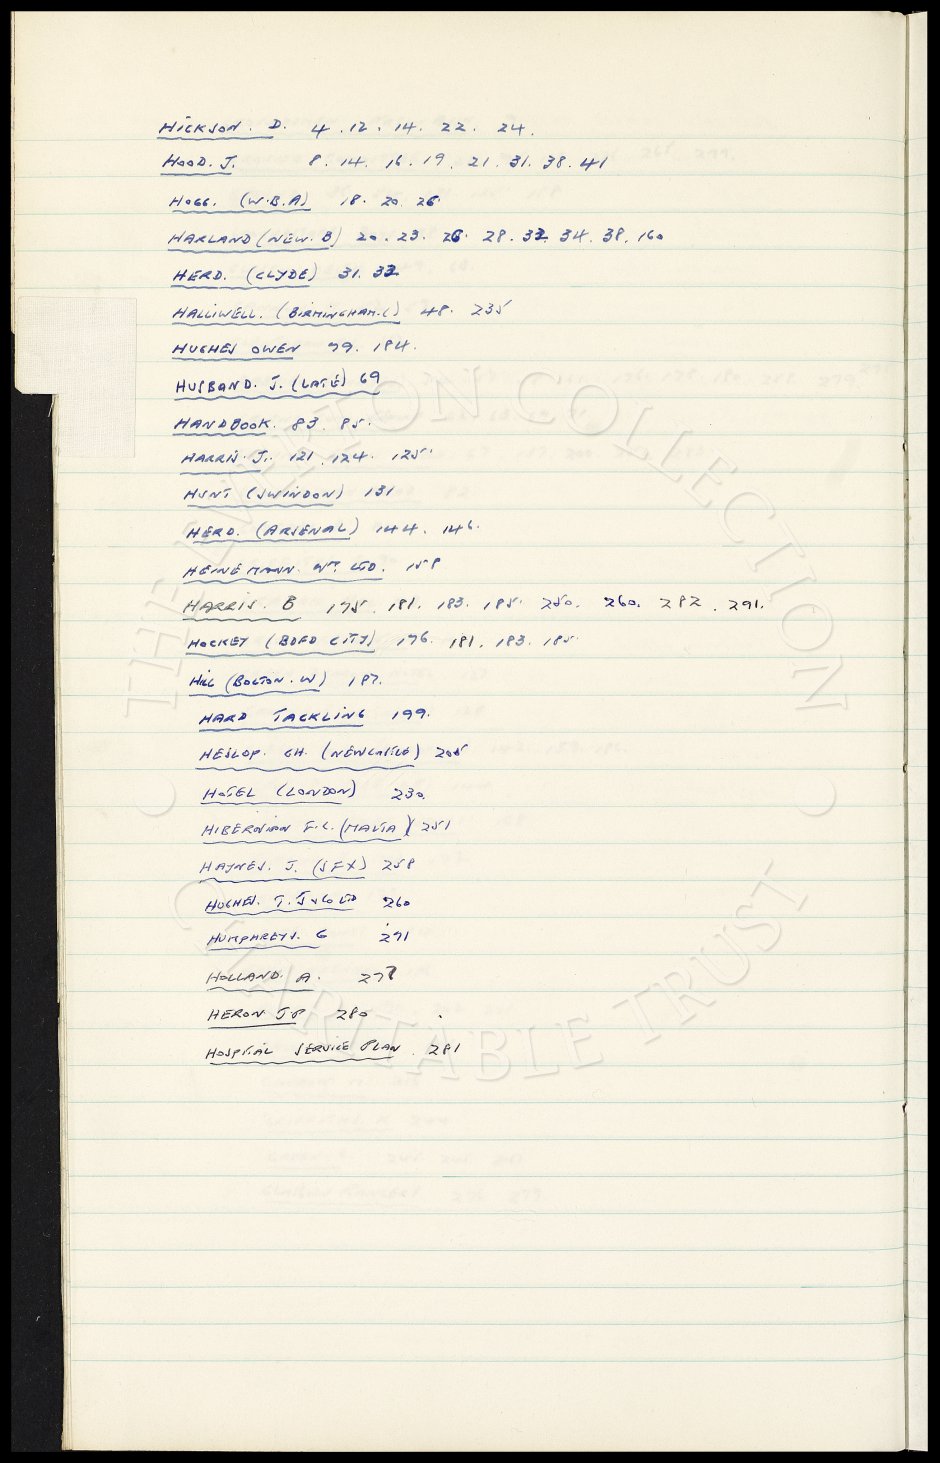 HICKSON. D. 4. 12. 14. 22. 24.
HOOD. J. 8. 14. 16. 19. 21. 31. 38. 41
HOGG. (W.B.A) 18. 20. 26.
HARLAND (NEW. B) 20. 23. 26. 28. 32 34. 38. 160
HERD. (CLYDE) 31. 32
HALLIWELL. (BIRMINGHAM.C) 48. 235
HUGHES OWEN 79. 184.
HUSBAND. J. (LATE) 69
HANDBOOK. 83. 85.
HARRIS. J. 121. 124. 125.
HUNT (SWINDON) 131
HERD. (ARSENAL) 144. 146.
HEINEMANN. WM. LTD. 158
HARRIS. B 175. 181. 183. 185. 250. 260. 282. 291.
HOCKEY (BDFD CITY) 176. 181. 183. 185.
HILL (BOLTON. W) 187.
HARD TACKLING 199.
HESLOP. GH. (NEWCASTLE) 205
HOTEL (LONDON) 230.
HIBERNIAN F.C. (MALTA) 251
HAYNES. J. (SFX) 258
HUGHES. T. J & CO LTD 260
HUMPHREYS. G 271
HOLLAND. A. 277
HERON J.P 280
HOSPITAL SERVICE PLAN. 281
THE WILTON COLLECTION
CHARITABLE TRUST